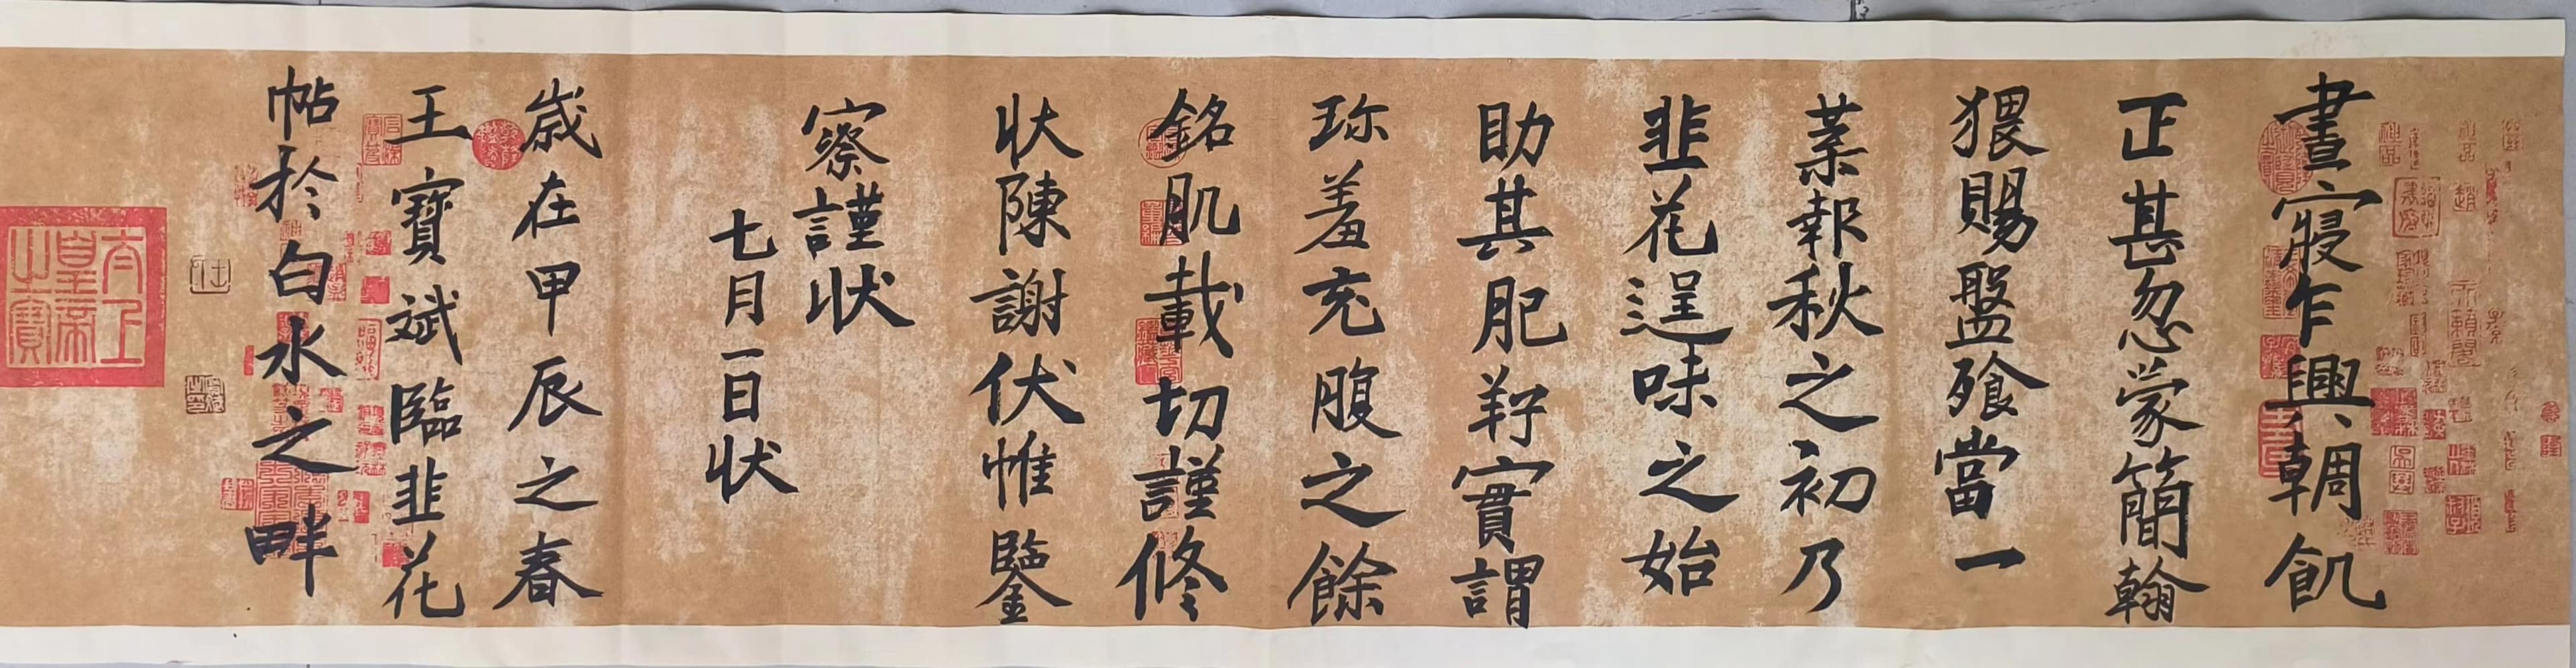 晝寢乍興輖飢
正甚忽蒙簡翰
猥賜盤飧當一
葉報秋之初乃
韭花逞味之始
助其肥羜實謂
珎羞充腹之餘
銘肌載切謹脩
狀陳謝伏惟鑒
察謹狀
七月一日狀
歲在甲辰之春
王寶斌臨韭花
帖於白水之畔
太上皇帝之寶